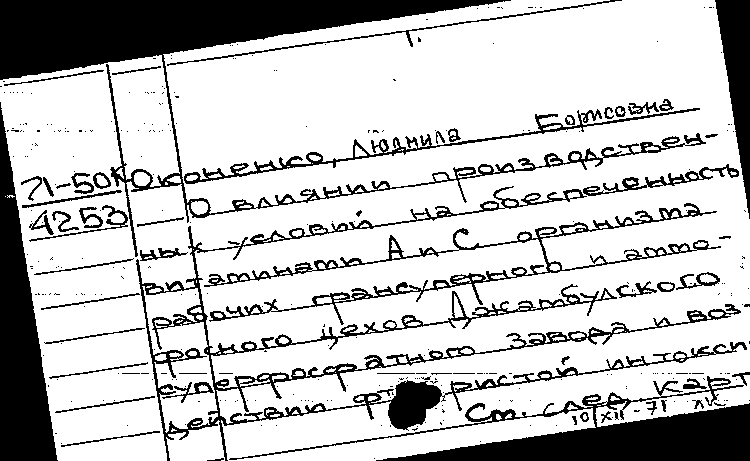 1.
Оконенко, Людмила Борисовна
71-50К
4253
О влиянии производствен-
ных условий на обеспеченность
витаминами А и С организма
рабочих грансуперного и аммо-
фосного цехов Джамбулского
суперфосфатного завода и воз-
действии интокси
См. след карт
10/XII-71 ЛК